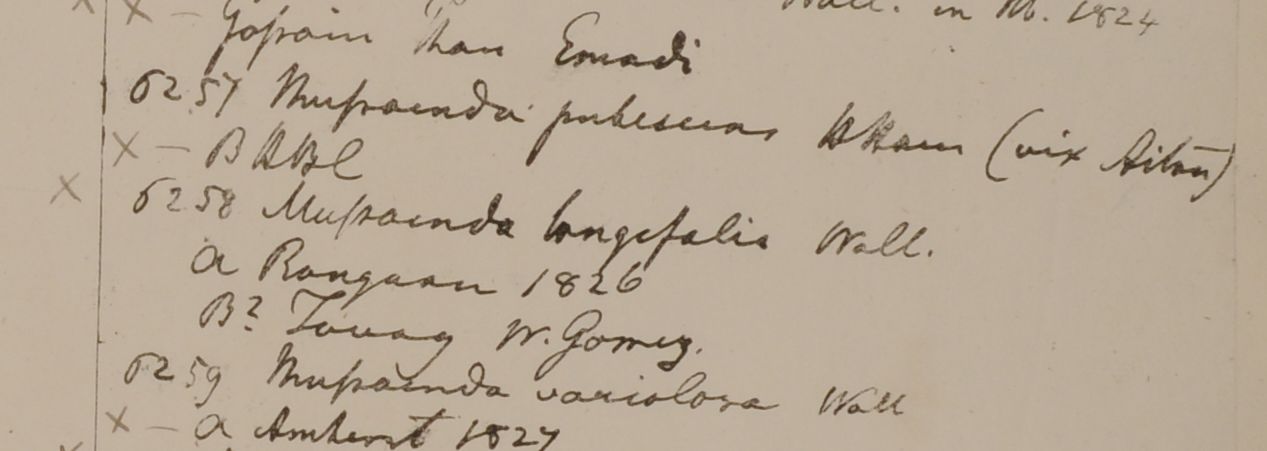 Wall. in Hb. 1824
x x — Gosain Than Emadi
6257 Mussaenda pubescens HHam (vix Aiton)
x — B HBC
x 6258 Mussaenda longifolia Wall.
a Rangoon 1826
B? Tavoy W. Gomez.
6259 Mussaenda variolosa Wall
x — a Amherst 1827